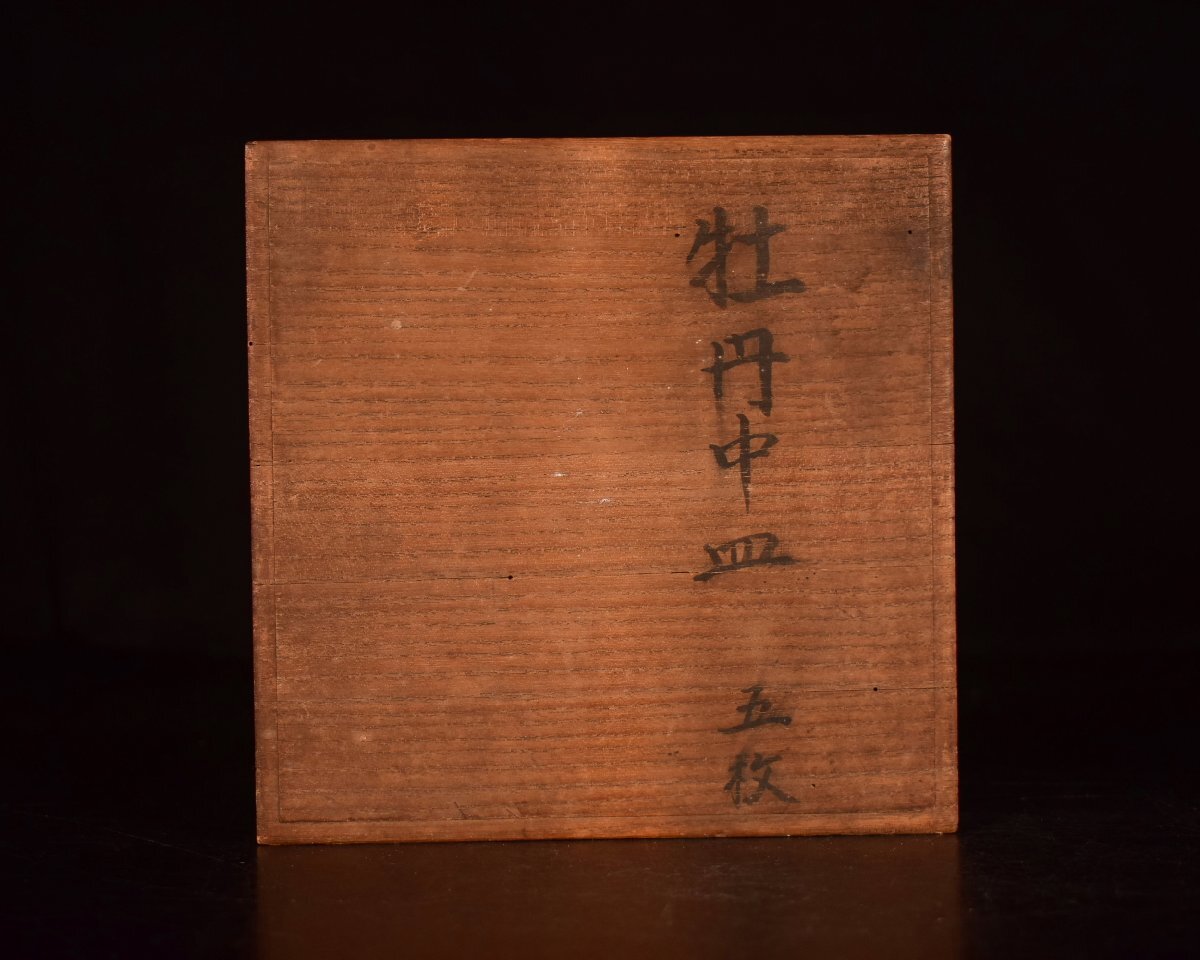 牡丹中皿 五枚